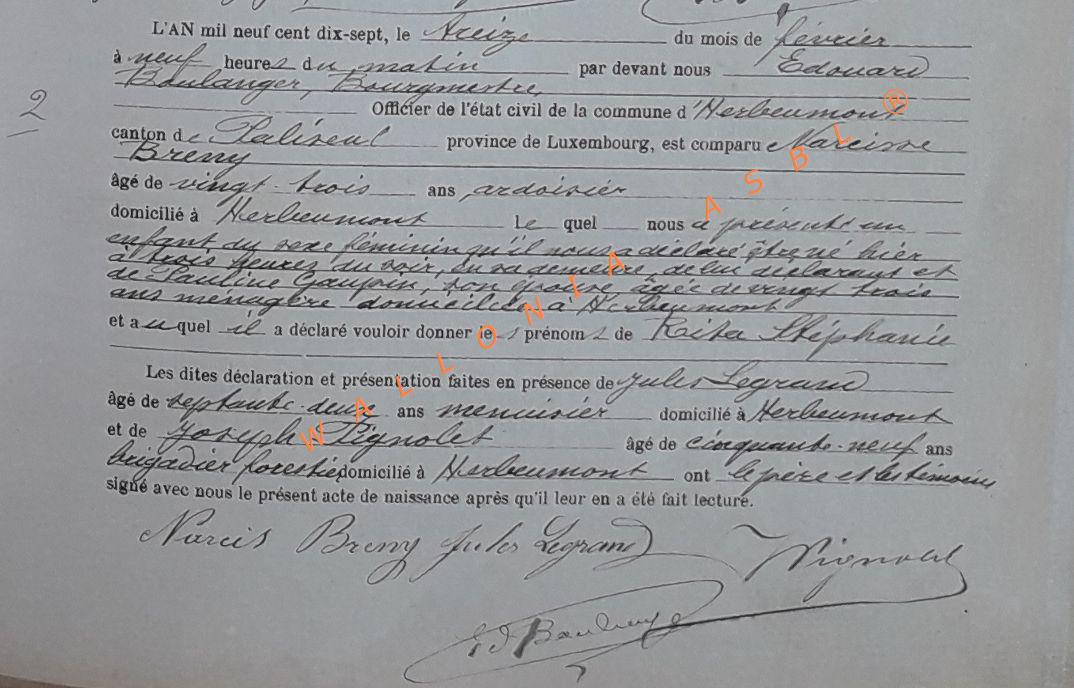 L'AN mil neuf cent dix-sept, le treize du mois de février
à neuf heures du matin par devant nous Edouard
Boulanger, Bourgmestre
Officier de l'état civil de la commune d'Herbeumont
canton de Paliseul province de Luxembourg, est comparu Narcisse
Breny
âgé de vingt-trois ans ardoisier
domicilié à Herbeumont lequel nous a présenté un
enfant du sexe féminin qu'il nous a déclaré être né hier
à trois heures du soir, en sa demeure, de lui déclarant et
de Pauline Gaupin, son épouse âgée de vingt trois
ans ménagère domiciliée à Herbeumont
et auquel il a déclaré vouloir donner les prénoms de Rita Stéphanie
Les dites déclaration et présentation faites en présence de Jules Legrand
âgé de septante-deux ans menuisier domicilié à Herbeumont
et de Joseph Pignolet âgé de cinquante-neuf ans
brigadier forestier domicilié à Herbeumont ont le père et les témoins
signé avec nous le présent acte de naissance après qu'il leur en a été fait lecture.
2
Narcis Breny Jules Legrand Pignolet
Ed Boulanger
WALLONIA ASBL ®